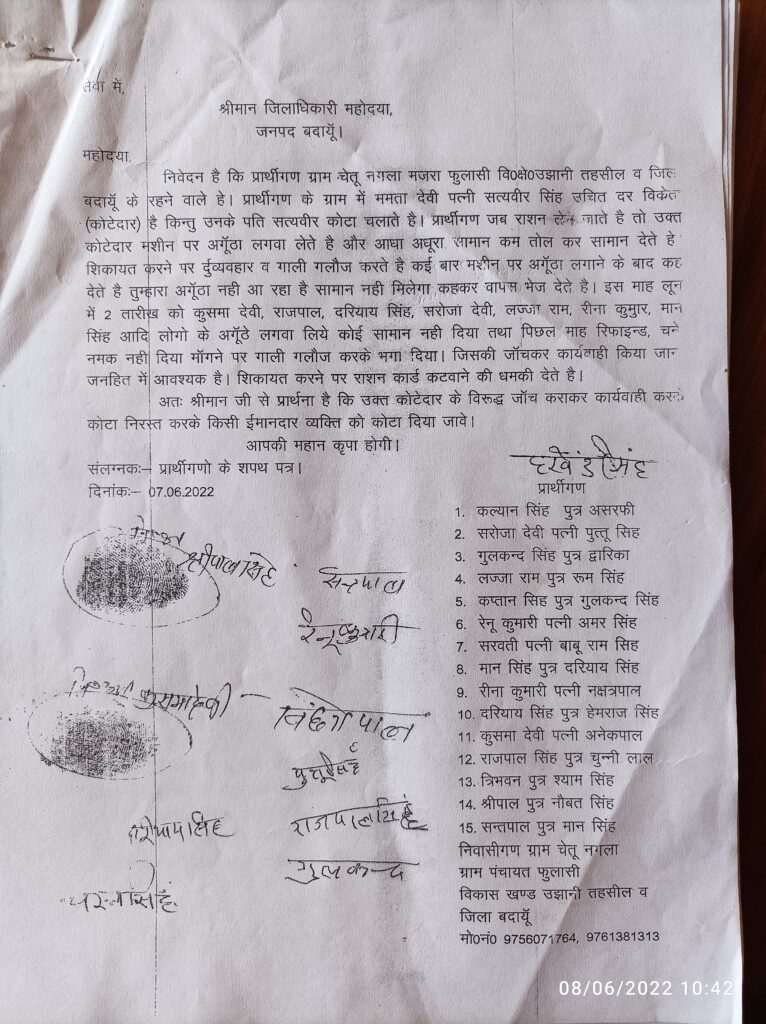 सेवा में,
श्रीमान जिलाधिकारी महोदया,
जनपद बदायूँ।
महोदया,
निवेदन है कि प्रार्थीगण ग्राम चेतू नगला मजरा फुलासी वि0क्षे0उझानी तहसील व जिल
बदायूँ के रहने वाले हे। प्रार्थीगण के ग्राम में ममता देवी पत्नी सत्यवीर सिंह उचित दर विक्रेत
(कोटेदार) है किन्तु उनके पति सत्यवीर कोटा चलाते है। प्रार्थीगण जब राशन लेने जाते है तो उक्त
कोटेदार मशीन पर अगूँठा लगवा लेते है और आधा अधूरा सामान कम तोल कर सामान देते हे
शिकायत करने पर र्दुव्यवहार व गाली गलौज करते है कई बार मशीन पर अगूँठा लगाने के बाद कह
देते है तुम्हारा अगूँठा नही आ रहा है सामान नही मिलेगा कहकर वापस भेज देते है। इस माह जून
में 2 तारीख को कुसमा देवी, राजपाल, दरियाय सिंह, सरोजा देवी, लज्जा राम, रीना कुमार, मान
सिंह आदि लोगो के अगूँठे लगवा लिये कोई सामान नही दिया तथा पिछल माह रिफाइन्ड, चने
नमक नही दिया मॉगने पर गाली गलौज करके भगा दिया। जिसकी जॉचकर कार्यवाही किया जान
जनहित में आवश्यक है। शिकायत करने पर राशन कार्ड कटवाने की धमकी देते है।
अतः श्रीमान जी से प्रार्थना है कि उक्त कोटेदार के विरूद्ध जॉच कराकर कार्यवाही करके
कोटा निरस्त करके किसी ईमानदार व्यक्ति को कोटा दिया जावे।
आपकी महान कृपा होगी।
संलग्नकः– प्रार्थीगणो के शपथ पत्र।
दिनांकः– 07.06.2022
प्रार्थीगण
1. कल्यान सिंह पुत्र असरफी
2. सरोजा देवी पत्नी पुत्तू सिंह
3. गुलकन्द सिंह पुत्र द्वारिका
4. लज्जा राम पुत्र रूम सिंह
5. कप्तान सिह पुत्र गुलकन्द सिंह
6. रेनू कुमारी पत्नी अमर सिंह
7. सरवती पत्नी बाबू राम सिंह
8. मान सिंह पुत्र दरियाय सिंह
9. रीना कुमारी पत्नी नक्षत्रपाल
10. दरियाय सिंह पुत्र हेमराज सिंह
11. कुसमा देवी पत्नी अनेकपाल
12. राजपाल सिंह पुत्र चुन्नी लाल
13. त्रिभवन पुत्र श्याम सिंह
14. श्रीपाल पुत्र नौबत सिंह
15. सन्तपाल पुत्र मान सिंह
निवासीगण ग्राम चेतू नगला
ग्राम पंचायत फुलासी
विकास खण्ड उझानी तहसील व
जिला बदायूँ
मो0नं0 9756071764, 9761381313
श्रीपाल सिंह
सन्तपाल
रेनू कुमारी
कुसमा देवी
राजपाल सिंह
गुलकन्द
08/06/2022 10:42